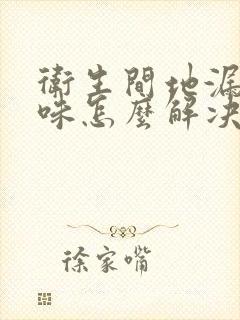 衛生間地漏
味怎麽解决
徐家嘴